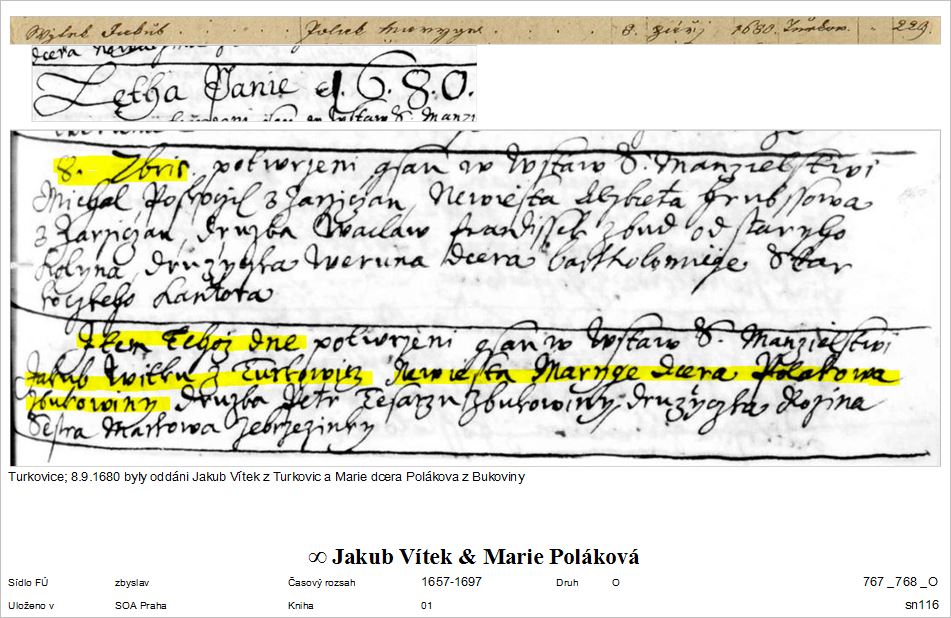 Wytek Jakub . Polák Maryye 8. září 1680. Turkow. 229.
dcera
Lętha Panie 1.6.8.0.
w Wstaw S. Manzi
8. Zbris potwrzeni gsau w Wstaw S. Manzielstwi
Michal Pospyssil z Zarziczan, Newiesta Alzbieta Hrubssowa
z Zarziczan, družba Waclaw od staryho
Kolyna, družyczka Weruna dcera bartholomieje Skar
Kantora
dne potwrzeni gsau w Wstaw S. Manzielstwi
Jakub Witku z Turkowicz Newiesta Maryge dcera Polakowa
Zbukowiny družba Petr Tesarzu Zbukowiny, družyczka Rozina
Sestra Martowa Zebrzezinky
Turkovice; 8.9.1680 byly oddáni Jakub Vítek z Turkovic a Marie dcera Polákova z Bukoviny
∞ Jakub Vítek & Marie Poláková
Sídlo FÚ zbyslav Časový rozsah 1657-1697 Druh O 767 _768 _O
Uloženo v SOA Praha Kniha 01 sn116